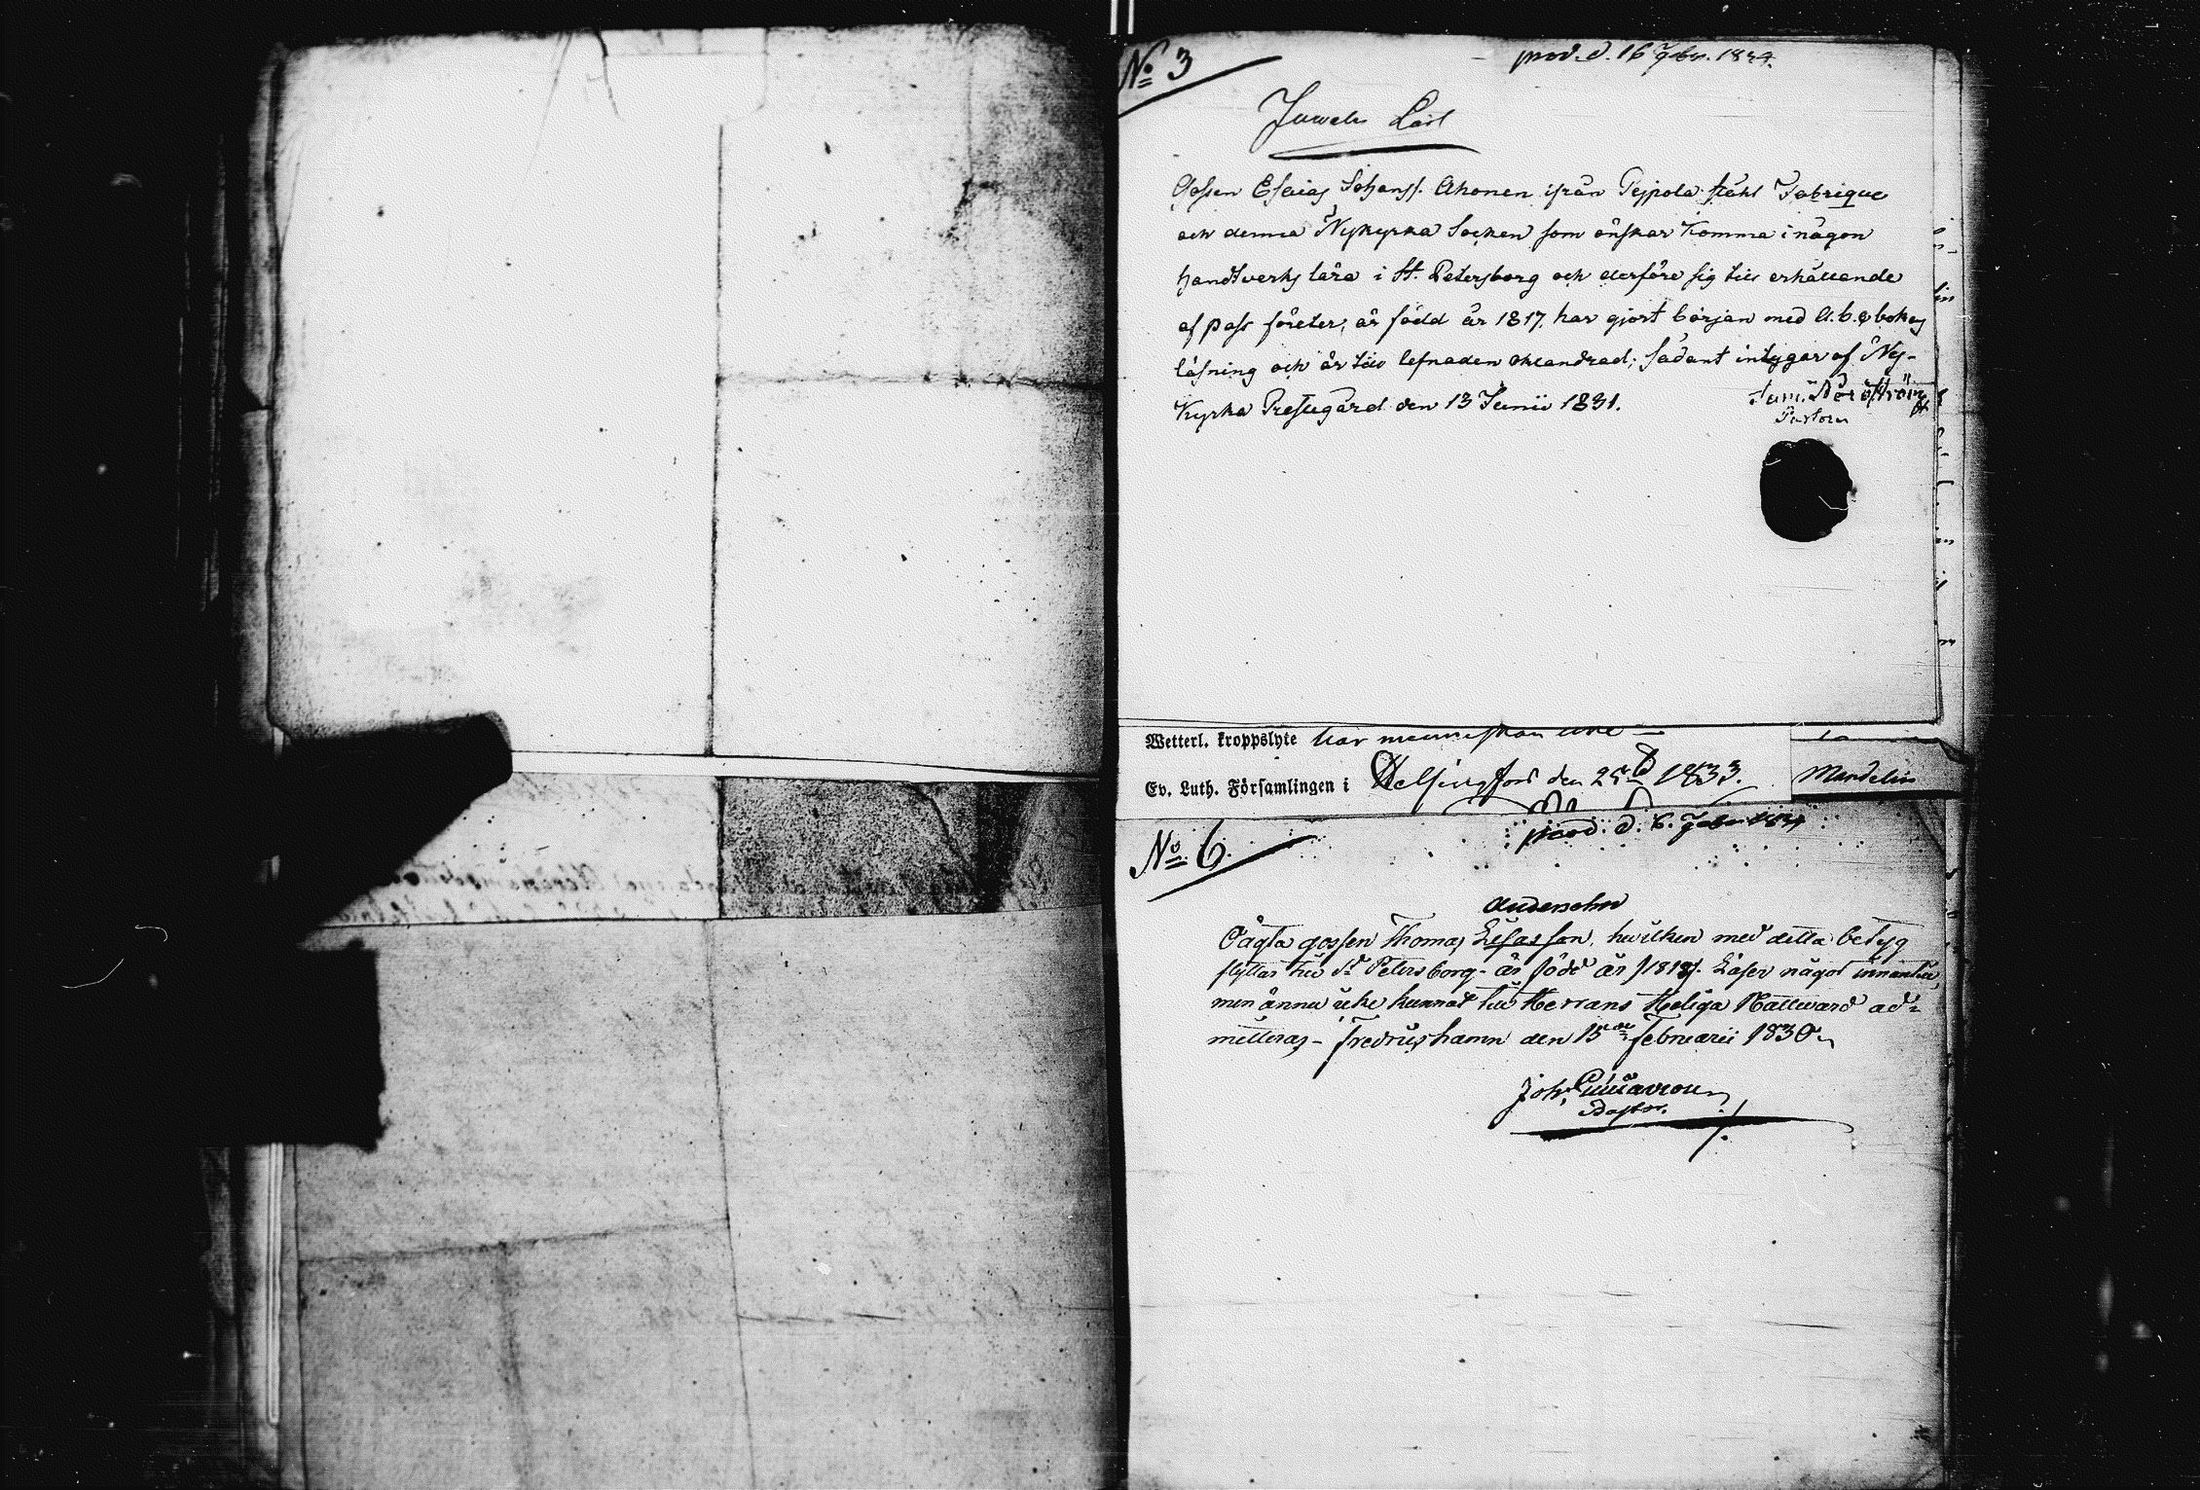 No 3
prod. d. 16 Febr. 1834.
Juwel. Carl
Gossen Esaias Johanss. Ahonen ifrån Peippola ståhl Fabrique
och denna Nykyrka Socken som önskar komma i någon
handtverks lära i St. Petersborg och derföre sig till erhållande
af pass företer, är född år 1817, har gjort början med A.b.c boks
läsning och är till lefnaden oklandrad; sådant intygar af Ny-
Kyrka Prestegård den 13 Junii 1831.
Pastor
Wetterl. kroppslyte har menniskan icke
Ev. Luth. Församlingen i Helsingfors den 25 1833.
Mandelin
No. 6.
prod. d. 6. Febr. 1834
Andersohn
Oägta gossen Thomas Lisasson, hvilken med detta betyg
flyttar till St Petersborg - är född år 1818. Läser något innantill,
men ännu icke kunnat till Herrans Heliga Nattward ad-
mitteras - Fredrikshamn den 15de Februarii 1830
Joh.
Pastor.